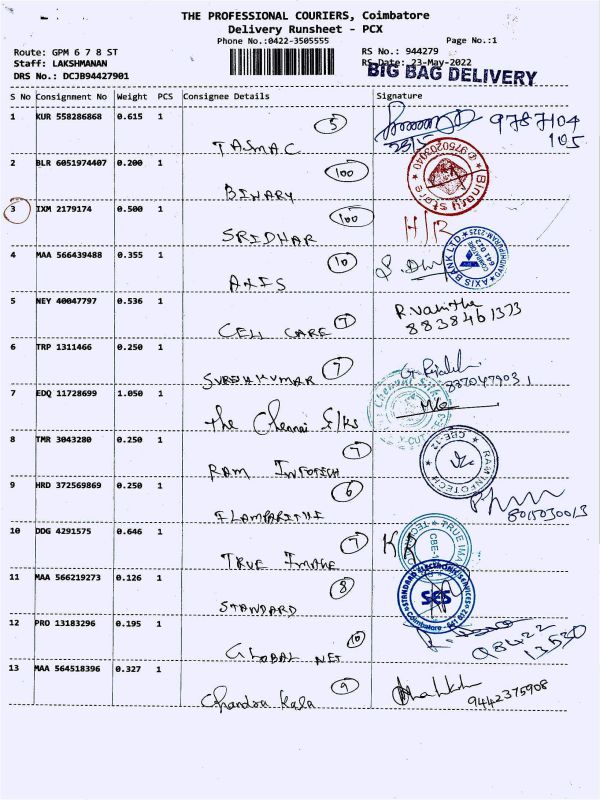 THE PROFESSIONAL COURIERS, Coimbatore
Delivery Runsheet - PCX
Phone No.:0422-3505555
Page No.:1
Route: GPM 6 7 8 ST
RS No.: 944279
Staff: LAKSHMANAN
RS Date: 23-May-2022
DRS No.: DCJB94427901
BIG BAG DELIVERY
S No Consignment No Weight PCS Consignee Details Signature
1 KUR 558286868 0.615 1 TASMAC 5 9787104
105
2 BLR 6051974407 0.200 1 BINARY 100 Binary store 9750203040
3 IXM 2179174 0.500 1 SRIDHAR 100
4 MAA 566439488 0.355 1 AXIS 10 AXIS BANK LTD
5 NEY 40047797 0.536 1 CELL CARE 7 R. Vanitha
8838461373
6 TRP 1311466 0.250 1 7
7 EDQ 11728699 1.050 1 the Chennai Silks
8 TMR 3043280 0.250 1 RAM INFOTECH 7 RAM INFOTECH CBE-12
9 HRD 372569869 0.250 1 6 8015030013
10 DDG 4291575 0.646 1 TRUE IMAGE 7 TRUE IMA
11 MAA 566219273 0.126 1 STANDARD 8 STANDARD ELECTRONIC SERVICES SES Coimbatore - 641 012
12 PRO 13183296 0.195 1 GLOBAL NET 10
13 MAA 564518396 0.327 1 Chandra Kala 9 9442375908